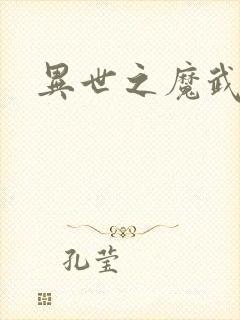 異世之魔武
孔莹